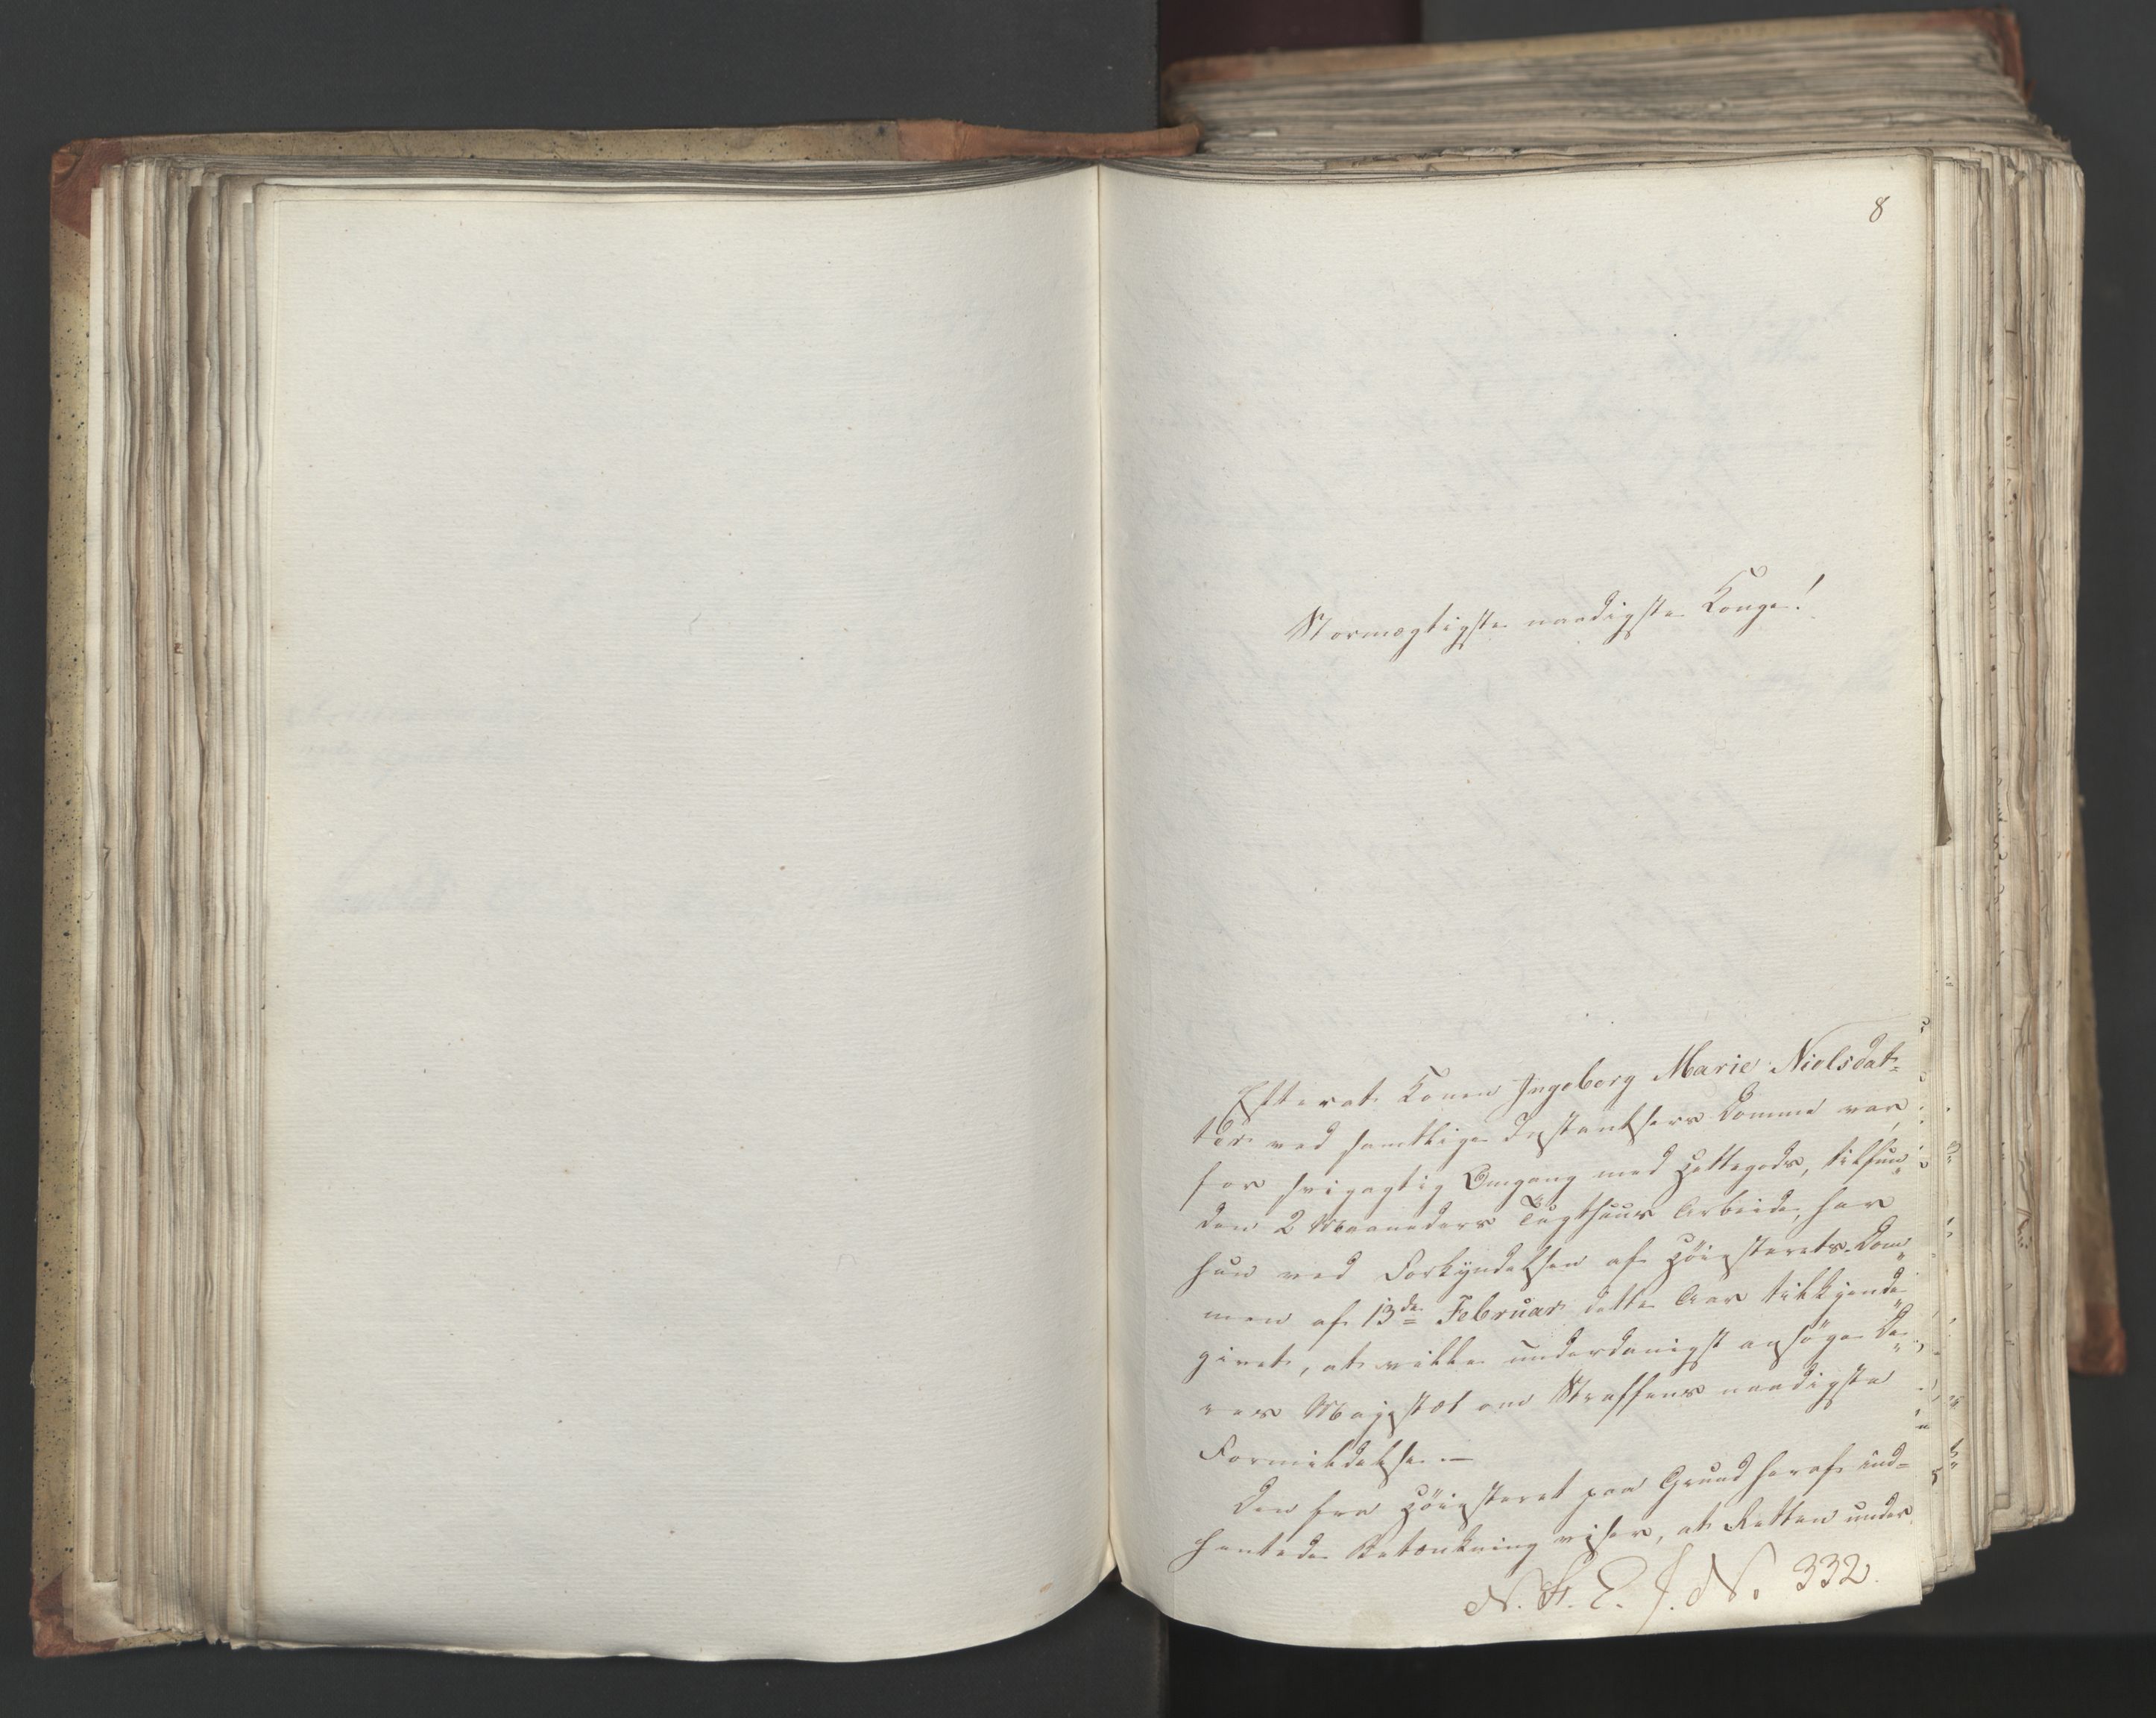 8
Stormægtigste naadigste Konge!
Efterat Konen Ingeborg Marie Nielsdat-
ter ved samtlige Instantsers Domme var,
for svigagtig Omgang med Hittegods, tilfun-
den 2 Maaneders Tugthuus Arbeide, har
hun ved Forkyndelsen af Höiesterets-Dom-
men af 13de Februar dette Aar tilkjende-
givet, at ville underdanigst ansöge De-
res Majestæt om Straffens naadigste
Formildelse.—
Den fra Höiesteret paa Grund heraf ind-
hentede Betænkning viser, at Retten under
N. S. E. J. N. 332.